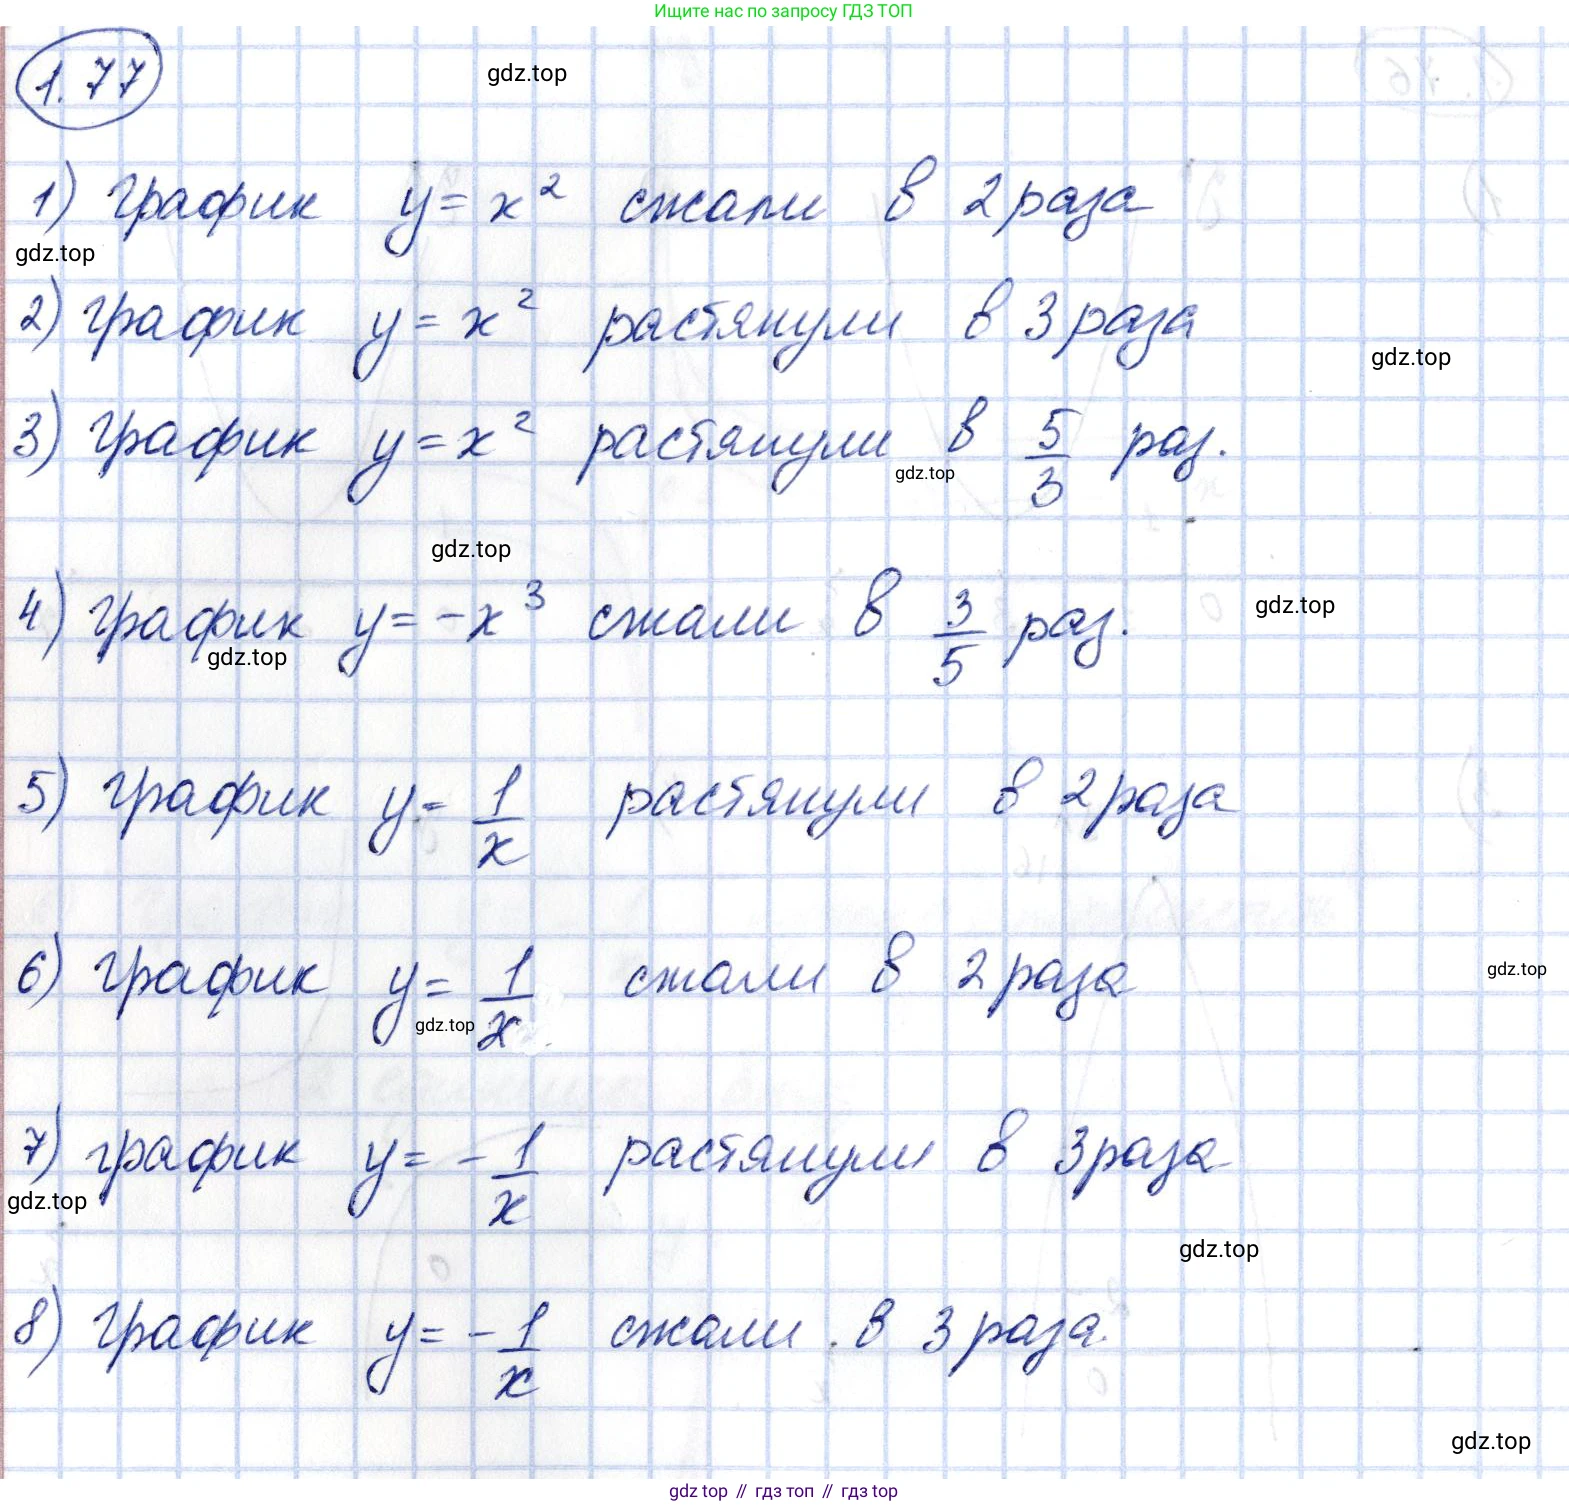 Ищите нас по запросу ГДЗ ТОП
1.77
gdz.top
1) график y = x² сжали в 2 раза
gdz.top
2) график y = x² растянули в 3 раза
gdz.top
3) график y = x² растянули в 5/3 раз.
gdz.top
gdz.top
4) график y = -x³ сжали в 3/5 раз.
gdz.top
gdz.top
5) график y = 1/x растянули в 2 раза
6) график y = 1/x сжали в 2 раза
gdz.top
gdz.top
7) график y = -1/x растянули в 3 раза
gdz.top
gdz.top
8) график y = -1/x сжали в 3 раза.
gdz.top
gdz top // гдз топ // гдз top